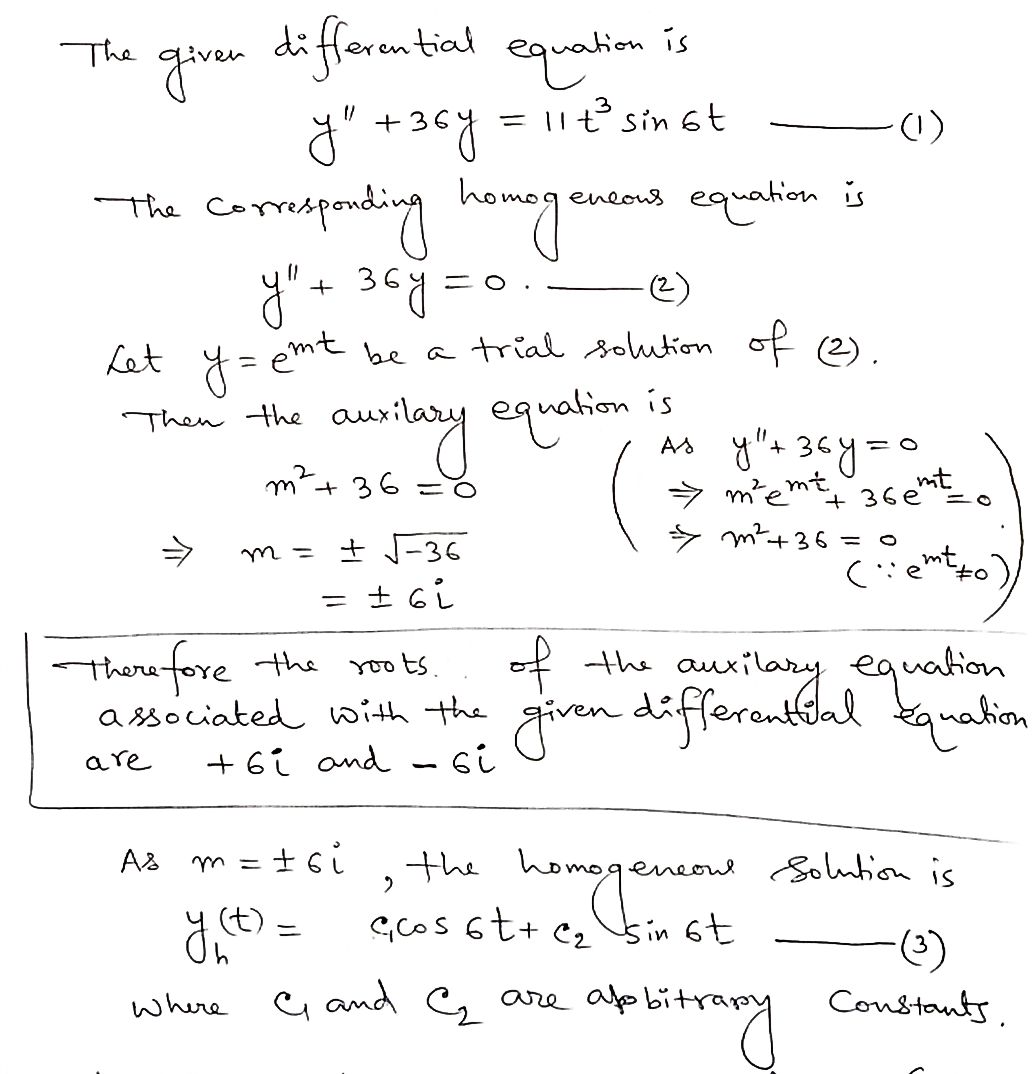 The given differential equation is
y" + 36y = 11t³ sin 6t ——— (1)
The corresponding homogeneous equation is
y" + 36y = 0. ——— (2)
Let y = e^{mt} be a trial solution of (2).
Then the auxilary equation is
m² + 36 = 0
⇒ m = ± √-36
= ± 6i
( As y" + 36y = 0
⇒ m²e^{mt} + 36e^{mt} = 0
⇒ m² + 36 = 0
(∵ e^{mt} ≠ 0) )
Therefore the roots. of the auxilary equation
associated with the given differential equation
are +6i and - 6i
As m = ± 6i , the homogeneous solution is
y_h(t) = c₁cos 6t + c₂ sin 6t ——— (3)
where c₁ and c₂ are arbitrary constants.